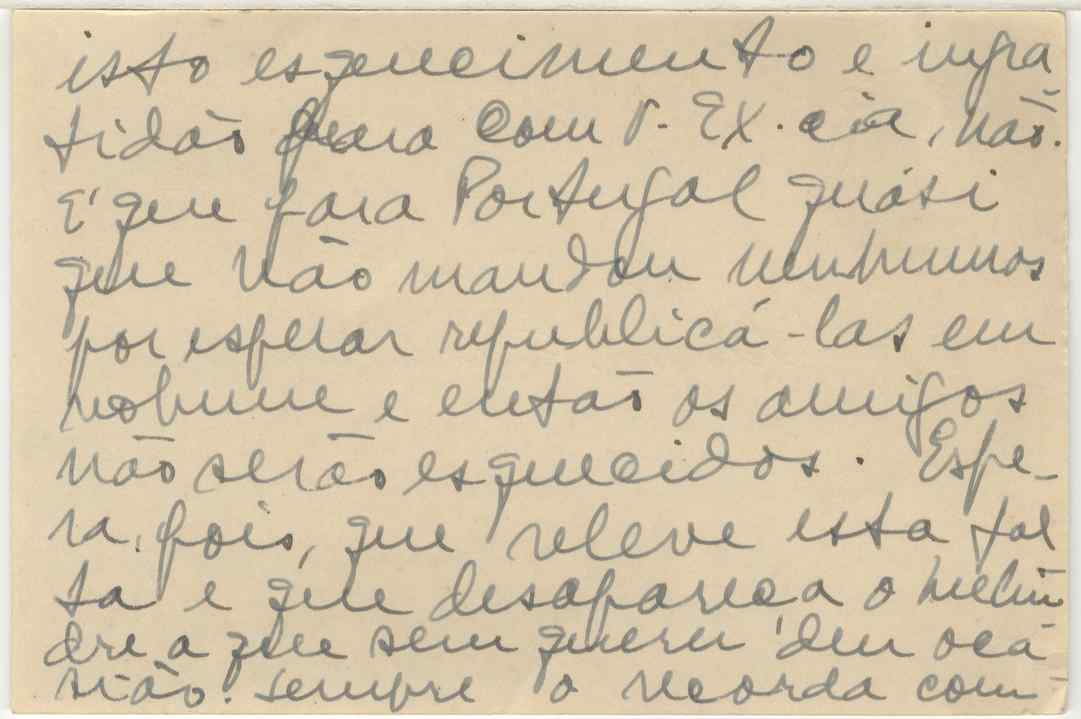 isto esquecimento e ingra
tidão para com V. Ex.cia, não.
É que para Portugal quási
que não mandou nenhumas
por esperar republicá-las em
volume e então os amigos
não serão esquecidos. Espe-
ra, pois, que releve esta fal
ta e que desapareça o melin
dre a que sem querer deu oca
sião. Sempre o recorda com